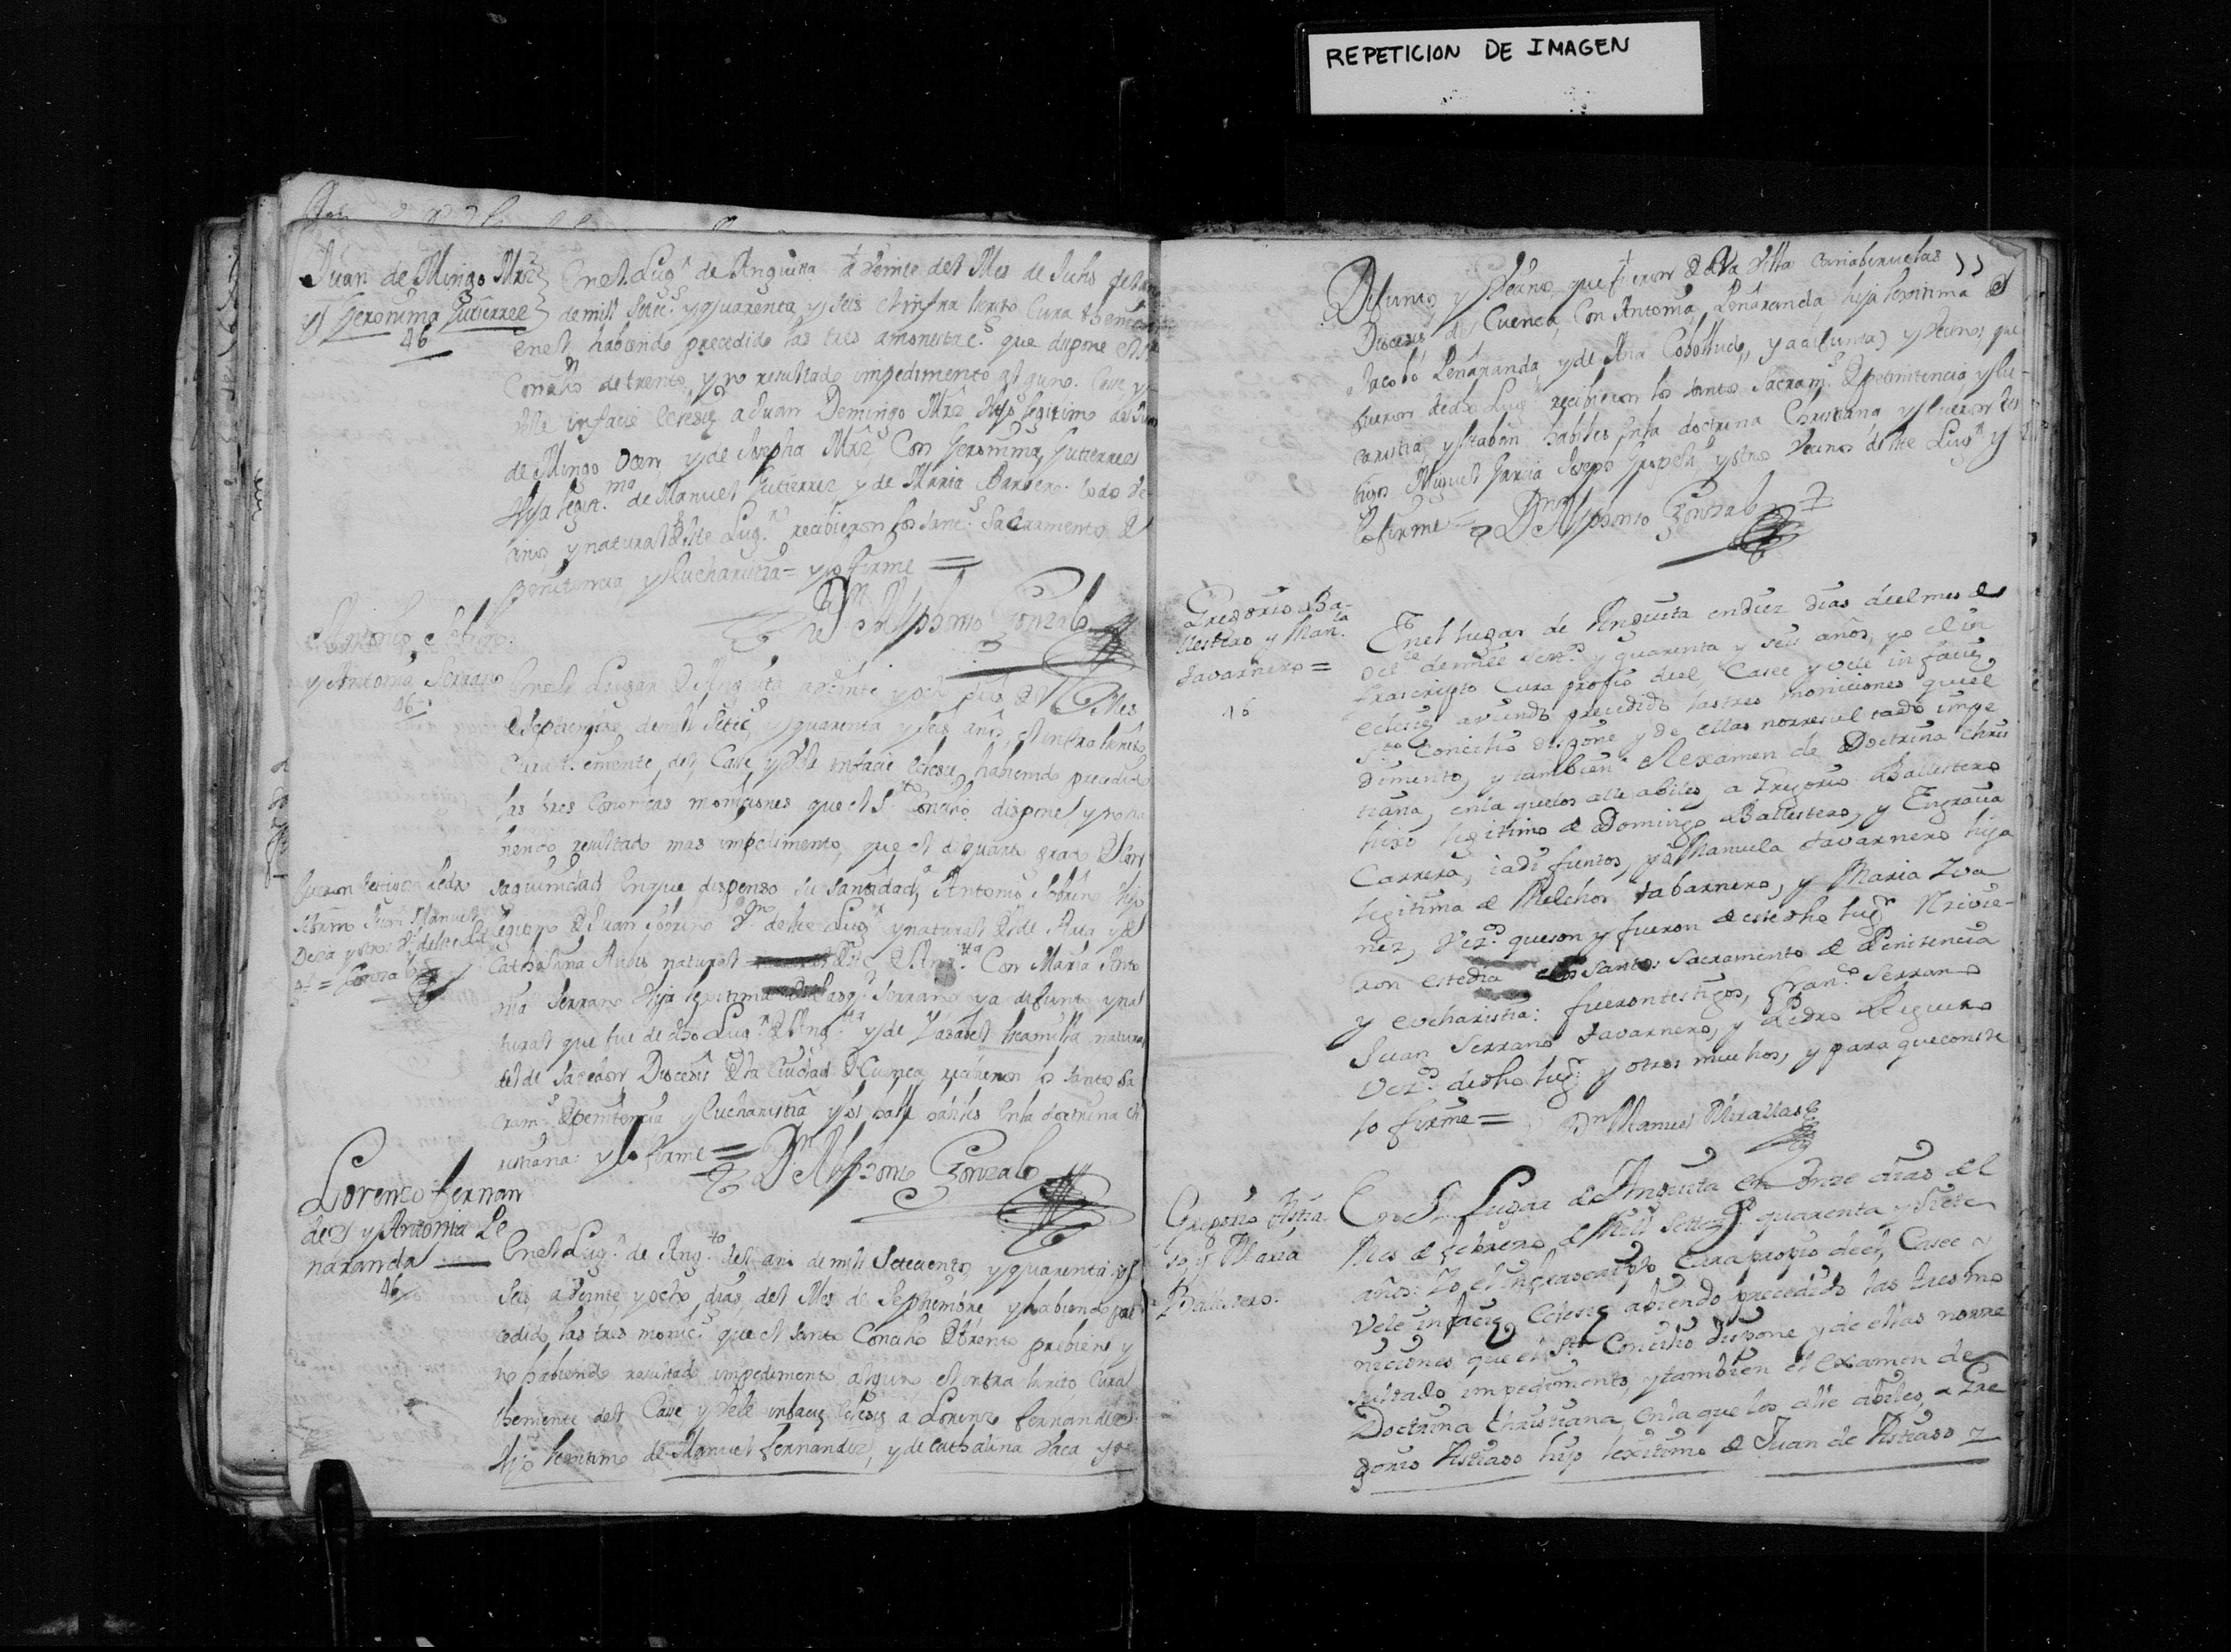 REPETICION DE IMAGEN
Juan de Mingo Mrz
y Geronima Gutierrez
46
En el Lug.r de Anguita a veinte del Mes de Julio del año
de mill Setec.s y quarenta y seis el infra scrito Cura theniente
en el, habiendo precedido las tres amonestac.s que dispone el S.to
Concilio de trento, y no resultado impedimento alguno. Case y
vele in facie eclesie a Juan Domingo Mrz Hijo legitimo de Juan
de Mingo y de Josepha Mrz Con Geronima Gutierrez
Hija legit.ma de Manuel Gutierrez y de Maria Barbero. todo ve-
cinos y natural deste Lug.r recibieron los sant.s Sacramento de
penitencia y Eucharistia = y lo firme =
D.n Alphonso Gonzalo
Antonio Sobrino
y Antonia Serrano
46
En el Lugar de Anguita a veinte y ocho dias del Mes
de Septiembre de mill Setec.s y quarenta y seis años, el infra scrito
Cura theniente del, Case y vele in facie eclesie, habiendo precedido
las tres Canonicas moniciones que el S.to Concilio dispone, y no ha
biendo resultado mas impedimento, que el de quarto grado de Con
saguinidad en que dispenso su santidad, a Antonio Sobrino Hijo
legitimo de Juan Sobrino V.no deste Lug.r y natural de
Cathalina Rubio natural deste de Ang.ta Con Maria Anto
nia Serrano Hija legitima de Serrano ya difunto y na
tural que fue de dho Lug.r de Ang.ta y de Ysabel natural
del de Sacedon Diocesis de la Ciudad de Cuenca, recibieron los santos Sa
cram.s de penitencia y Eucharistia y los halle habiles en la doctrina ch
ristiana: y lo firme =
D.n Alphonso Gonzalo
fueron testigos Pedro
Juan Manuel
y otros V.s deste Lug
= Gonzalo
Lorenzo Fernan
dez y Antonia Pe
naranda
46
En el Lug.r de Ang.ta del año de mill Setecientos y quarenta y
seis a veinte y ocho dias del Mes de Septiembre y habiendo pre
cedido las tres monic.s que el santo Concilio de trento prebiene y
no habiendo resultado impedimento alguno el infra scrito Cura
theniente del Case y vele in facie eclesie a Lorenzo Fernandez
Hijo legitimo de Manuel Fernandez, y de Cathalina Vaca ya
Difuntos y Vecinos que fueron de la Villa Canaberuelas
Diocesis de Cuenca, Con Antonia Penaranda hija legitima de
Jacobo Penaranda, y de Ana ya difuntos y vecinos que
fueron de dho Lug.r recibieron los santos Sacram.s de penitencia y Eu-
caristia, y estaban habiles en la doctrina Christiana y fueron tes
tigos Miguel Garcia Joseph y otros Vecinos deste Lug.r y
lo firme =
D.n Alphonso Gonzalo
Gregorio Ba-
llestero y Man.la
Tavarnero =
46
En el lugar de Anguita en diez dias del mes de
Oct.re de mill set.os y quarenta y seis años, yo el in
frascripto Cura propio de el, Casee y vele in facie
eclesie aviendo precedido las tres moniciones que el
S.to Concilio dispone y de ellas no rresultado impe
dimento, y tambien el examen de Doctrina chris
tiana, en la que los alle abiles, a Gregorio Ballestero
hijo legitimo de Domingo Ballestero, y Engracia
Carrera, ia difuntos, y a Manuela Tavarnero hija
legitima de Melchor tabarnero, y Maria Iva
nez, vez.os que son y fueron de este dho lug.r Recivie-
ron este dia los santos sacramento de Penitencia
y eucharistia: fueron testigos, fran.co Serrano
Juan Serrano Tavarnero, y Pedro Reguero
vez.os de dho lug.r y otros muchos, y para que conste
lo firme =
D.n Manuel Miralles
Gregorio Astia
so, y Maria
Ballestero.
En el Lugar de Anguita en onze dias del
Mes de febrero de Mill Sette.s quarenta y Siete
años: Yo el infrascripto Cura propio de el, Casee y
vele in facie Eclesie abiendo precedido las tres mo
niciones que el S.to Concilio dispone y de ellas no rre
sultado impedimento, y tambien el examen de
Doctrina Christiana en la que los alle abiles, a Gre
gorio Astiaso hijo lexitimo de Juan de Astiaso y